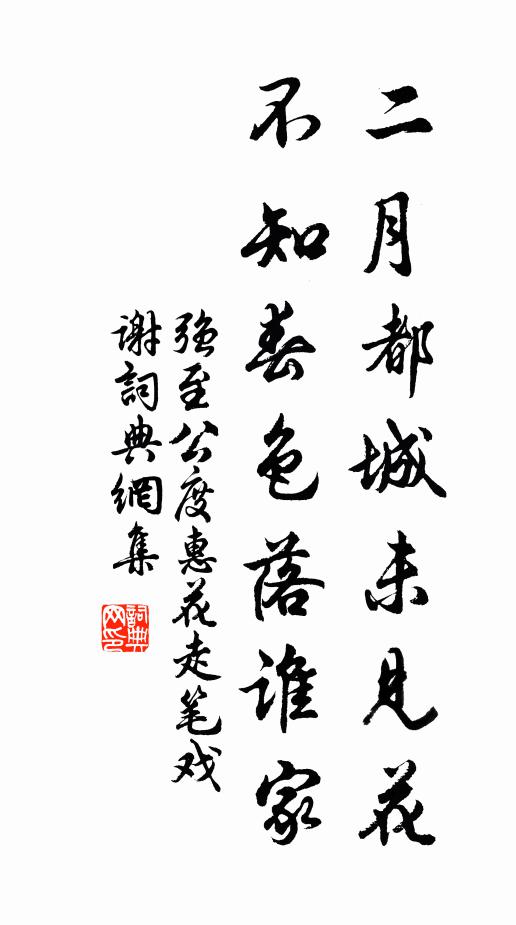 二月都城未見花
不知春色落誰家
强至公度惠花走笔戏
謝詞典網集
詞典
网印